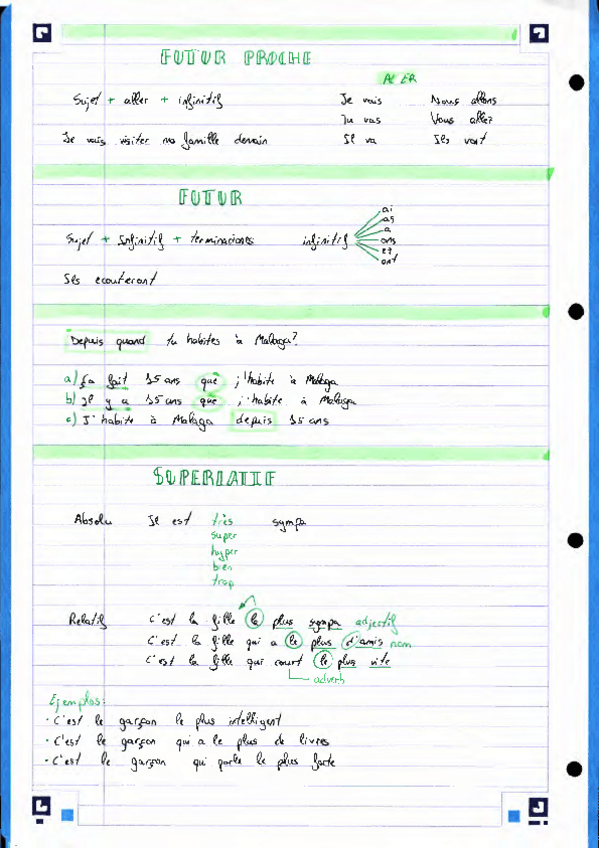 FUTUR PROCHE
ALLER
Sujet + aller + infinitif Je vais Nous allons
Tu vas Vous allez
Je vais visiter ma famille demain Il va Ils vont
FUTUR
ai
as
a
Sujet + Infinitif + terminaciones infinitif ons
ez
ont
Ils ecouteront
Depuis quand tu habites à Malaga?
a) Ça fait 15 ans que j'habite à Malaga
b) Il y a 15 ans que j'habite à Malaga
c) J'habite à Malaga depuis 15 ans
SUPERLATIF
Absolu Il est très sympa
super
hyper
bien
trop
Relatif C'est la fille la plus sympa adjectif
C'est la fille qui a le plus d'amis nom
C'est la fille qui court le plus vite
adverb
Ejemplos:
· C'est le garçon le plus intelligent
· C'est le garçon qui a le plus de livres
· C'est le garçon qui parle le plus forte